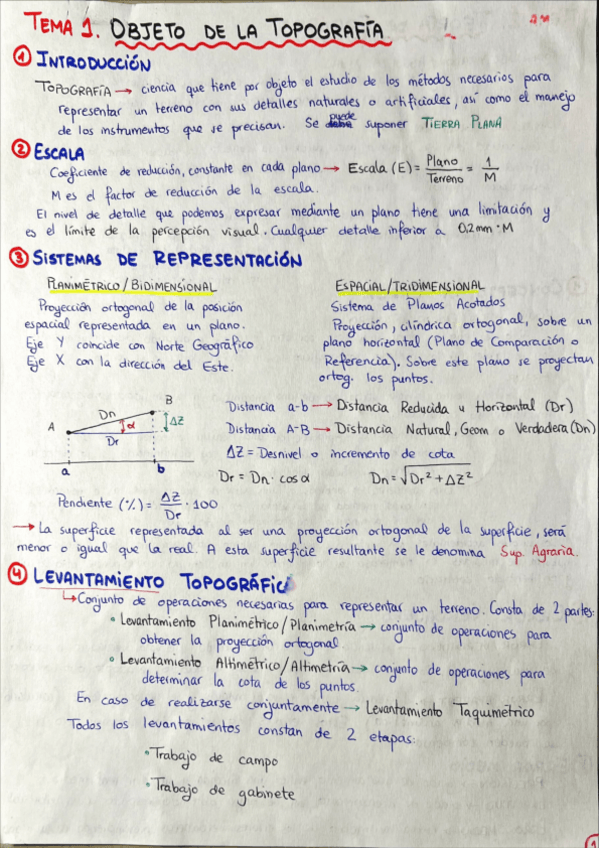 TEMA 1. OBJETO DE LA TOPOGRAFÍA
① INTRODUCCIÓN
TOPOGRAFÍA → ciencia que tiene por objeto el estudio de los métodos necesarios para
representar un terreno con sus detalles naturales o artificiales, así como el manejo
de los instrumentos que se precisan. Se puede suponer TIERRA PLANA
② ESCALA
Coeficiente de reducción, constante en cada plano → Escala (E) = Plano/Terreno = 1/M
M es el factor de reducción de la escala.
El nivel de detalle que podemos expresar mediante un plano tiene una limitación y
es el límite de la percepción visual. Cualquier detalle inferior a 0,2mm·M
③ SISTEMAS DE REPRESENTACIÓN
PLANIMÉTRICO/BIDIMENSIONAL
Proyección ortogonal de la posición
espacial representada en un plano.
Eje Y coincide con Norte Geográfico
Eje X con la dirección del Este.
ESPACIAL/TRIDIMENSIONAL
Sistema de Planos Acotados
Proyección, cilíndrica ortogonal, sobre un
plano horizontal (Plano de Comparación o
Referencia). Sobre este plano se proyectan
ortog. los puntos.
A Dn B
α ΔZ
Dr
a b
Distancia a-b → Distancia Reducida u Horizontal (Dr)
Distancia A-B → Distancia Natural, Geom o Verdadera (Dn)
ΔZ = Desnivel o incremento de cota
Dr = Dn · cos α Dn = √Dr² + ΔZ²
Pendiente (%) = ΔZ/Dr · 100
→ La superficie representada al ser una proyección ortogonal de la superficie, será
menor o igual que la real. A esta superficie resultante se le denomina Sup. Agraria.
④ LEVANTAMIENTO TOPOGRÁFIC
↳ Conjunto de operaciones necesarias para representar un terreno. Consta de 2 partes:
• Levantamiento Planimétrico/Planimetría → conjunto de operaciones para
obtener la proyección ortogonal.
• Levantamiento Altimétrico/Altimetría → conjunto de operaciones para
determinar la cota de los puntos.
En caso de realizarse conjuntamente → Levantamiento Taquimétrico
Todos los levantamientos constan de 2 etapas:
• Trabajo de campo
• Trabajo de gabinete
1